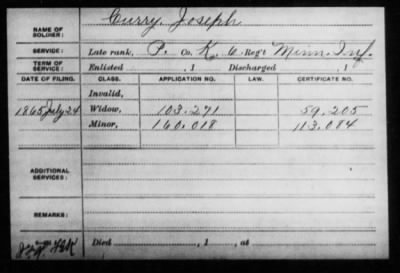 NAME OF SOLDIER: Curry, Joseph
SERVICE: Late rank, P. Co. K, 6 Reg't Minn. Inf.
TERM OF SERVICE: Enlisted , 1 Discharged , 1
DATE OF FILING. CLASS. APPLICATION NO. LAW. CERTIFICATE NO.
Invalid,
1865 July 24 Widow, 103.271 59.205
Minor, 160.018 113.084
ADDITIONAL SERVICES:
REMARKS:
Died , 1 , at